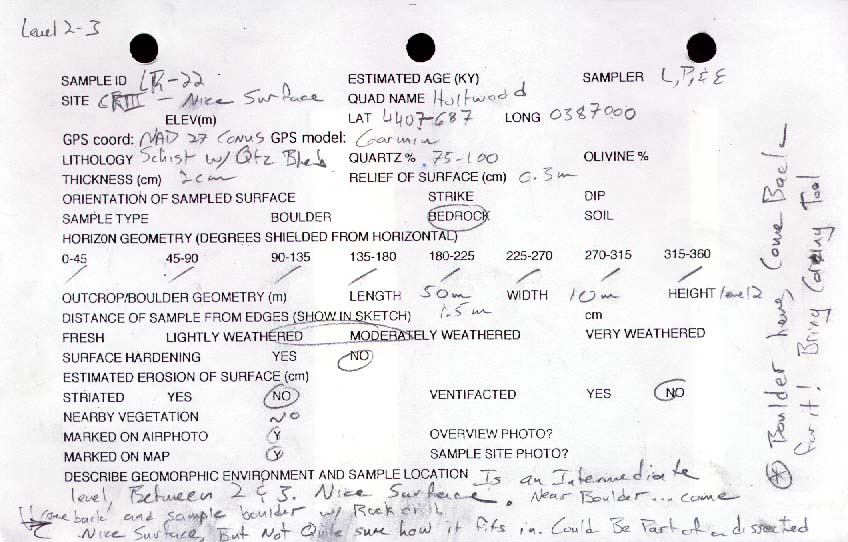 Level 2-3
SAMPLE ID LR-22 ESTIMATED AGE (KY) SAMPLER L, P, & E
SITE CRIII - Nice Surface QUAD NAME Holtwood
ELEV(m) LAT 4407687 LONG 0387000
GPS coord: NAD 27 CONUS GPS model: Garmin
LITHOLOGY Schist w/ Qtz Blebs QUARTZ % .75-100 OLIVINE %
THICKNESS (cm) 2cm RELIEF OF SURFACE (cm) 0.3m
ORIENTATION OF SAMPLED SURFACE STRIKE DIP
SAMPLE TYPE BOULDER BEDROCK SOIL
HORIZON GEOMETRY (DEGREES SHIELDED FROM HORIZONTAL)
0-45 45-90 90-135 135-180 180-225 225-270 270-315 315-360
OUTCROP/BOULDER GEOMETRY (m) LENGTH 50m WIDTH 10m HEIGHT level 2
DISTANCE OF SAMPLE FROM EDGES (SHOW IN SKETCH) 1.5m cm
FRESH LIGHTLY WEATHERED MODERATELY WEATHERED VERY WEATHERED
SURFACE HARDENING YES NO
ESTIMATED EROSION OF SURFACE (cm)
STRIATED YES NO VENTIFACTED YES NO
NEARBY VEGETATION NO
MARKED ON AIRPHOTO Y OVERVIEW PHOTO?
MARKED ON MAP Y SAMPLE SITE PHOTO?
DESCRIBE GEOMORPHIC ENVIRONMENT AND SAMPLE LOCATION Is an Intermediate
level Between 2 & 3. Nice Surface. Near Boulder... come
come back and sample boulder w/ Rock drill
Nice Surface, But Not Quite sure how it fits in. Could Be Part of a dissected
Boulder here, Come Back
for it! Bring Coring Tool